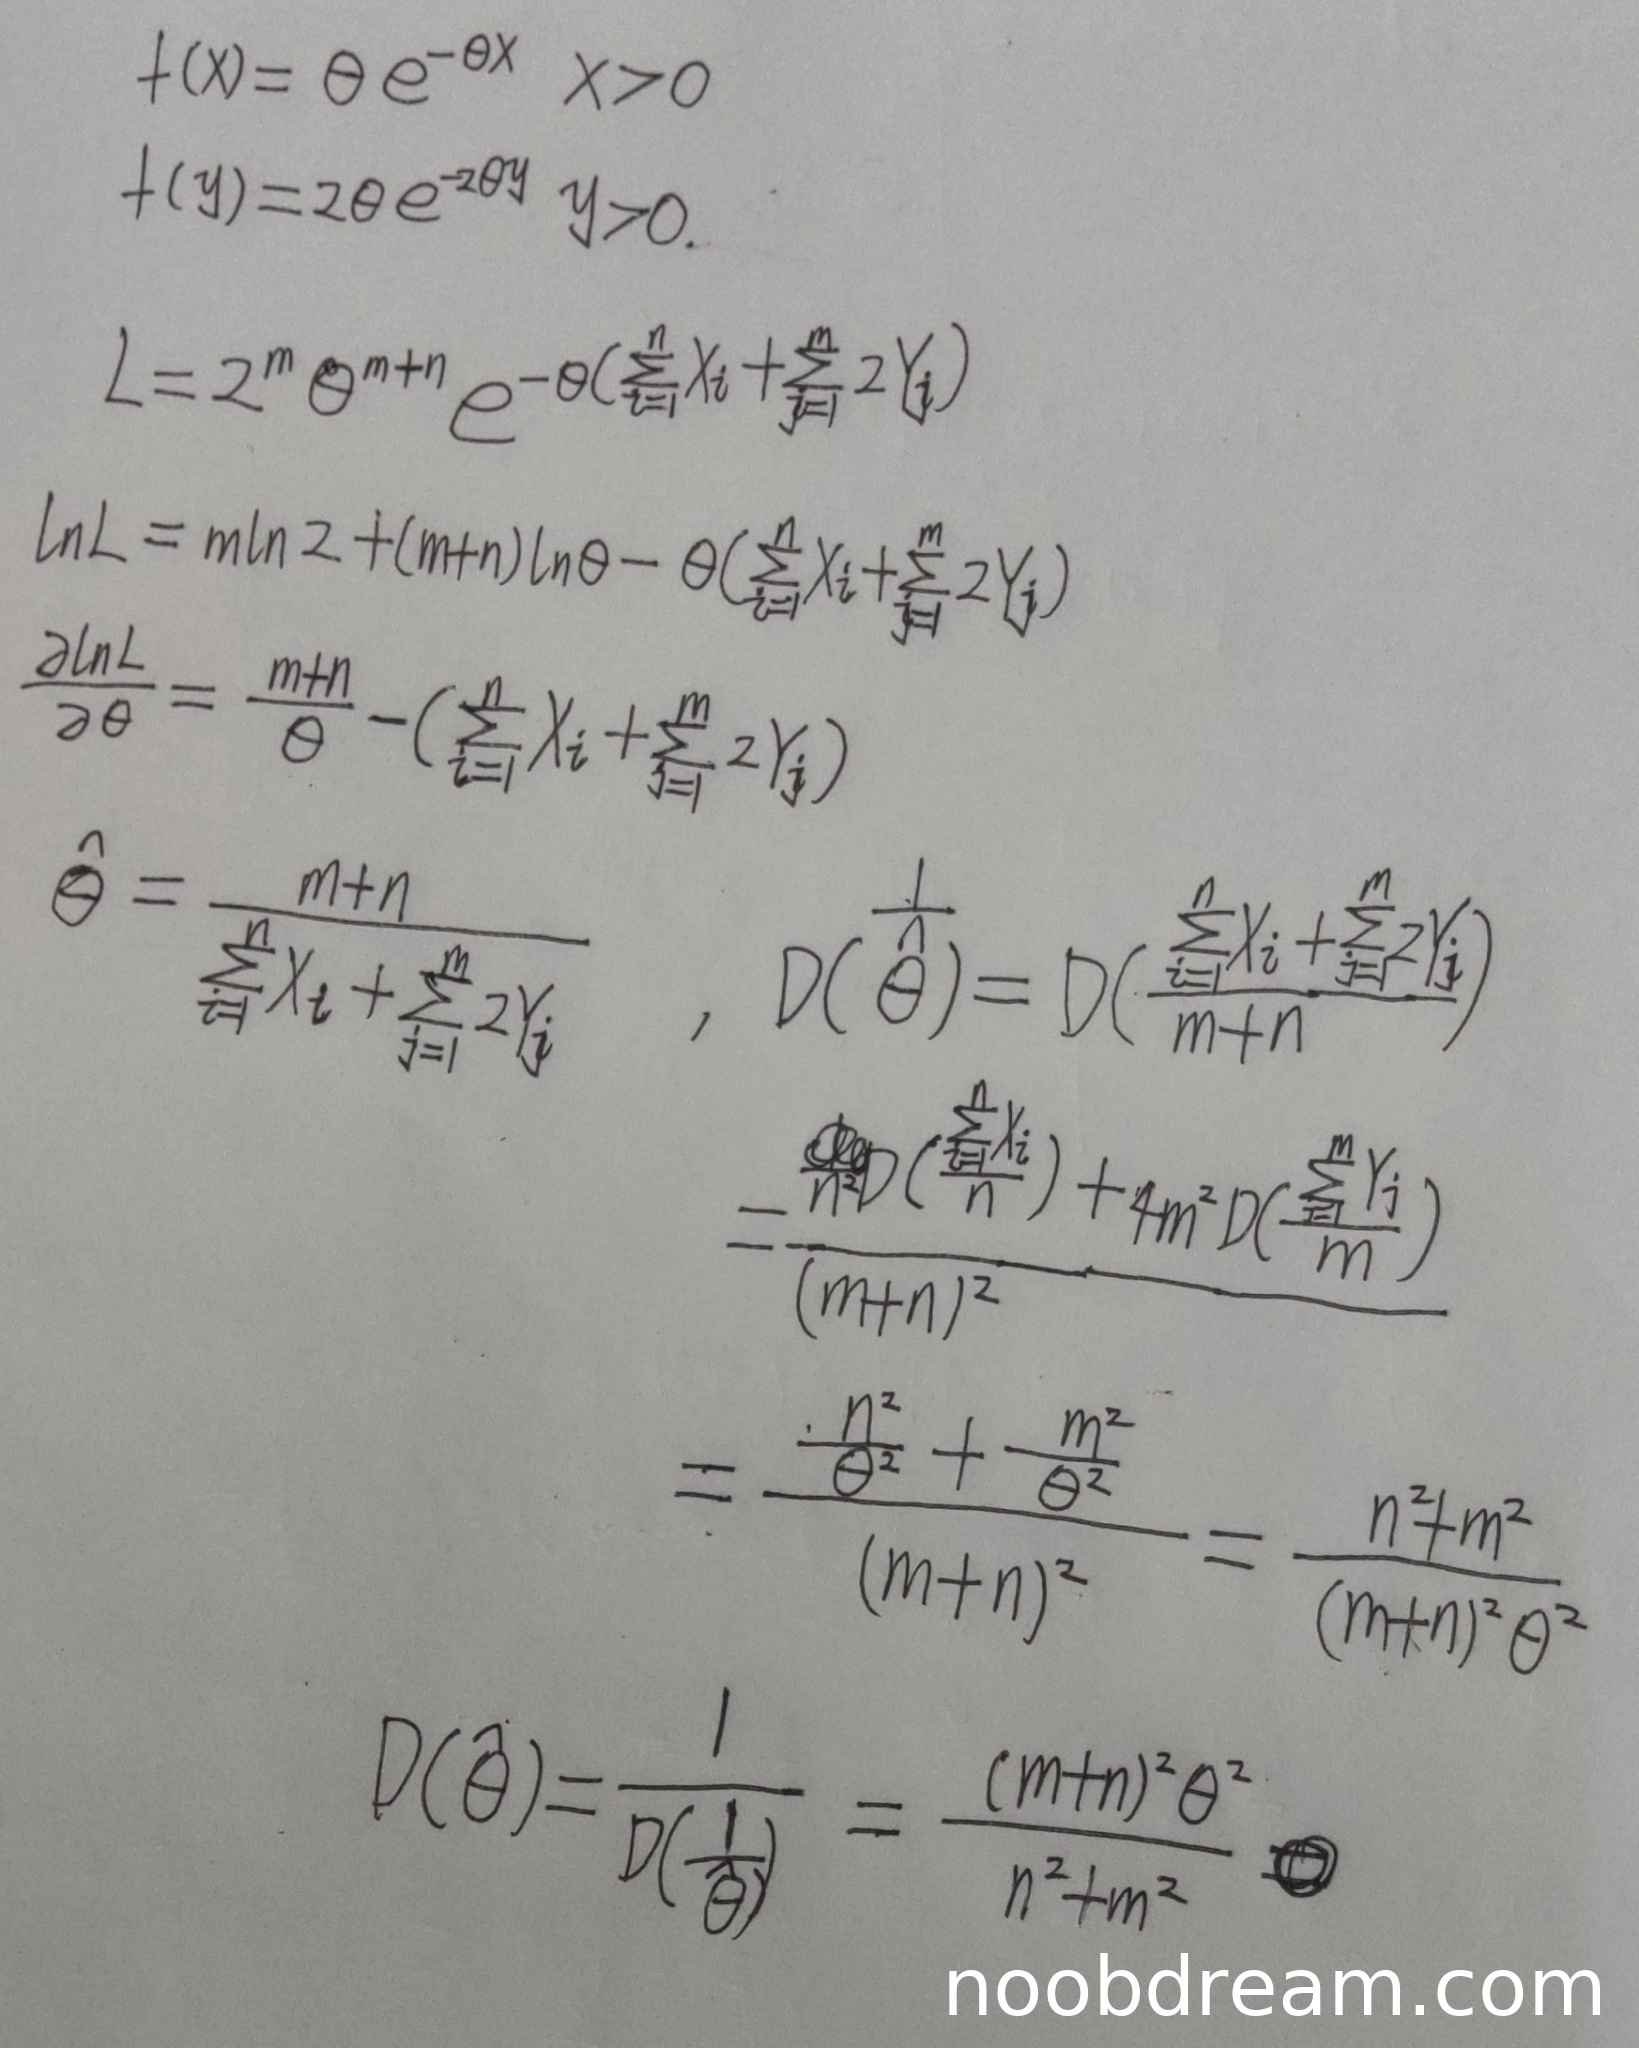 f(x) = θe^{-θx} x>0
f(y) = 2θe^{-2θy} y>0.
L = 2^m θ^{m+n} e^{-θ(∑_{i=1}^{n} X_i + ∑_{j=1}^{m} 2Y_j)}
lnL = mln2 + (m+n)lnθ - θ(∑_{i=1}^{n} X_i + ∑_{j=1}^{m} 2Y_j)
∂lnL/∂θ = (m+n)/θ - (∑_{i=1}^{n} X_i + ∑_{j=1}^{m} 2Y_j)
θ̂ = (m+n)/(∑_{i=1}^{n} X_i + ∑_{j=1}^{m} 2Y_j) , D(1/θ̂) = D((∑_{i=1}^{n} X_i + ∑_{j=1}^{m} 2Y_j)/(m+n))
= (n²D((∑_{i=1}^{n} X_i)/n) + 4m²D((∑_{j=1}^{m} Y_j)/m))/(m+n)²
= (n²/θ² + m²/θ²)/(m+n)² = (n²+m²)/((m+n)²θ²)
D(θ̂) = 1/D(1/θ̂) = (m+n)²θ²/(n²+m²)
noobdream.com